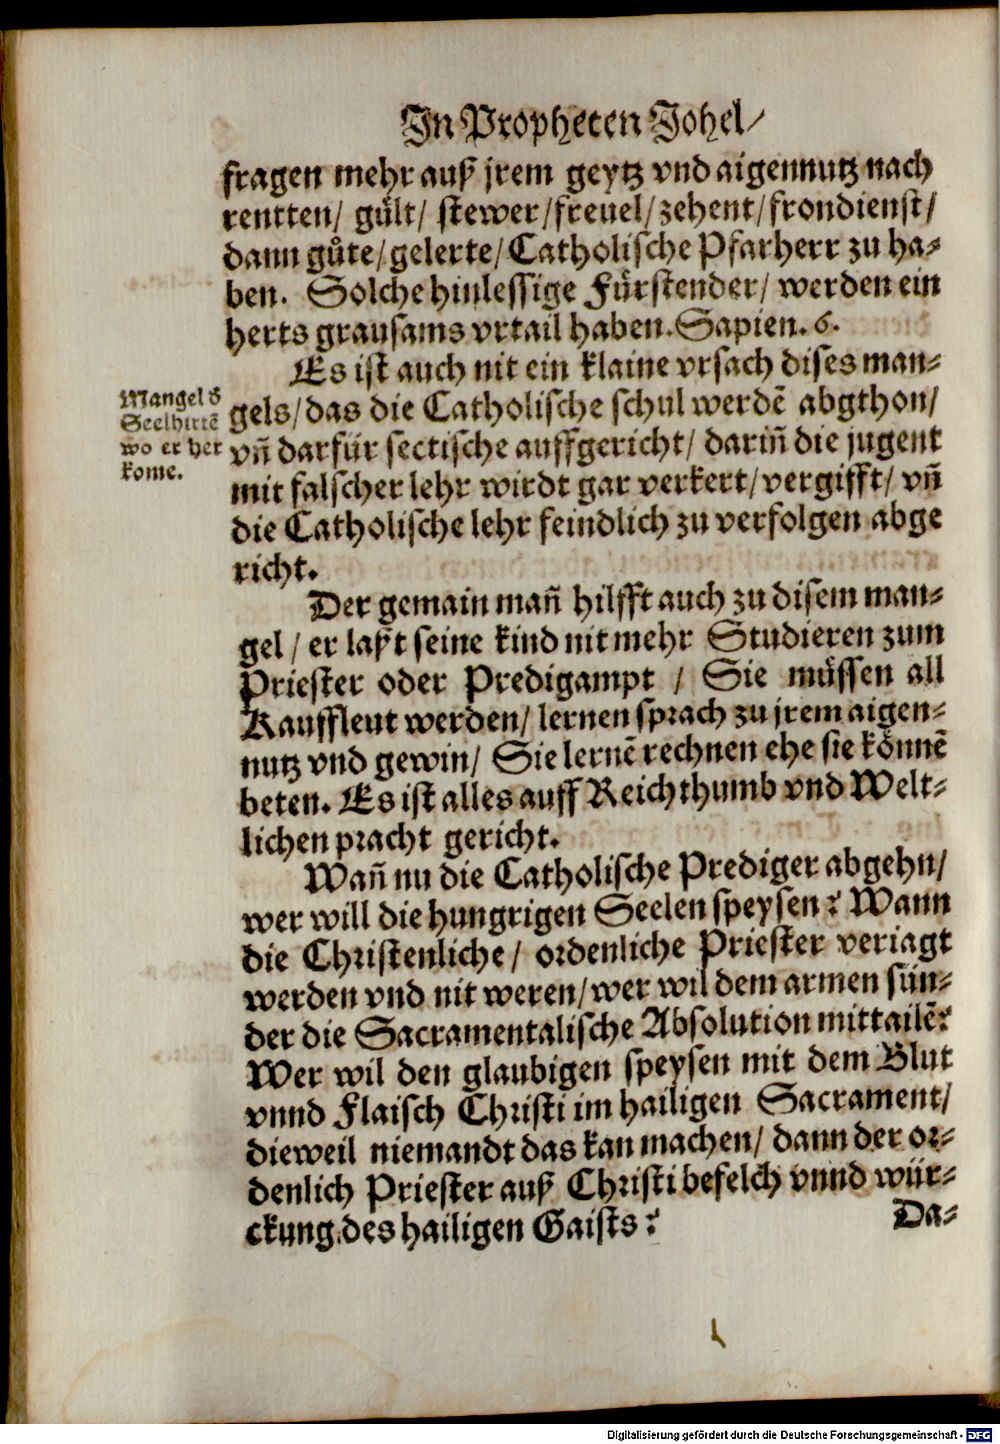 In Propheten Johel/
fragen mehr auß jrem geytz vnd aigennutz nach
rentten/ gült/ stewer/freuel/zehent/frondienst/
dann gůte/gelerte/Catholische Pfarherr zu ha-
ben. Solche hinlessige Fürstender/ werden ein
herts grausams vrtail haben. Sapien. 6.
Es ist auch nit ein klaine vrsach dises man-
Mangel ð
Seelhirtē
wo er her
kome.
gels/das die Catholische schul werdē abgthon/
vñ darfür sectische auffgericht/ dariñ die jugent
mit falscher lehr wirdt gar verkert/vergifft/ vñ
die Catholische lehr feindlich zu verfolgen abge
richt.
Der gemain mañ hilfft auch zu disem man-
gel/ er laßt seine kind nit mehr Studieren zum
Priester oder Predigampt / Sie müssen all
Kauffleut werden/ lernen sprach zu jrem aigen-
nutz vnd gewin/ Sie lernē rechnen ehe sie könnē
beten. Es ist alles auff Reichthumb vnd Welt-
lichen pracht gericht.
Wañ nu die Catholische Prediger abgehn/
wer will die hungrigen Seelen speysen? Wann
die Christenliche/ ordenliche Priester veriagt
werden vnd nit weren/wer wil dem armen sün-
der die Sacramentalische Absolution mittailē?
Wer wil den glaubigen speysen mit dem Blut
vnnd Flaisch Christi im hailigen Sacrament/
dieweil niemandt das kan machen/ dann der or-
denlich Priester auß Christi befelch vnnd wür-
ckung des hailigen Gaists?
Da-
Digitalisierung gefördert durch die Deutsche Forschungsgemeinschaft - DFG